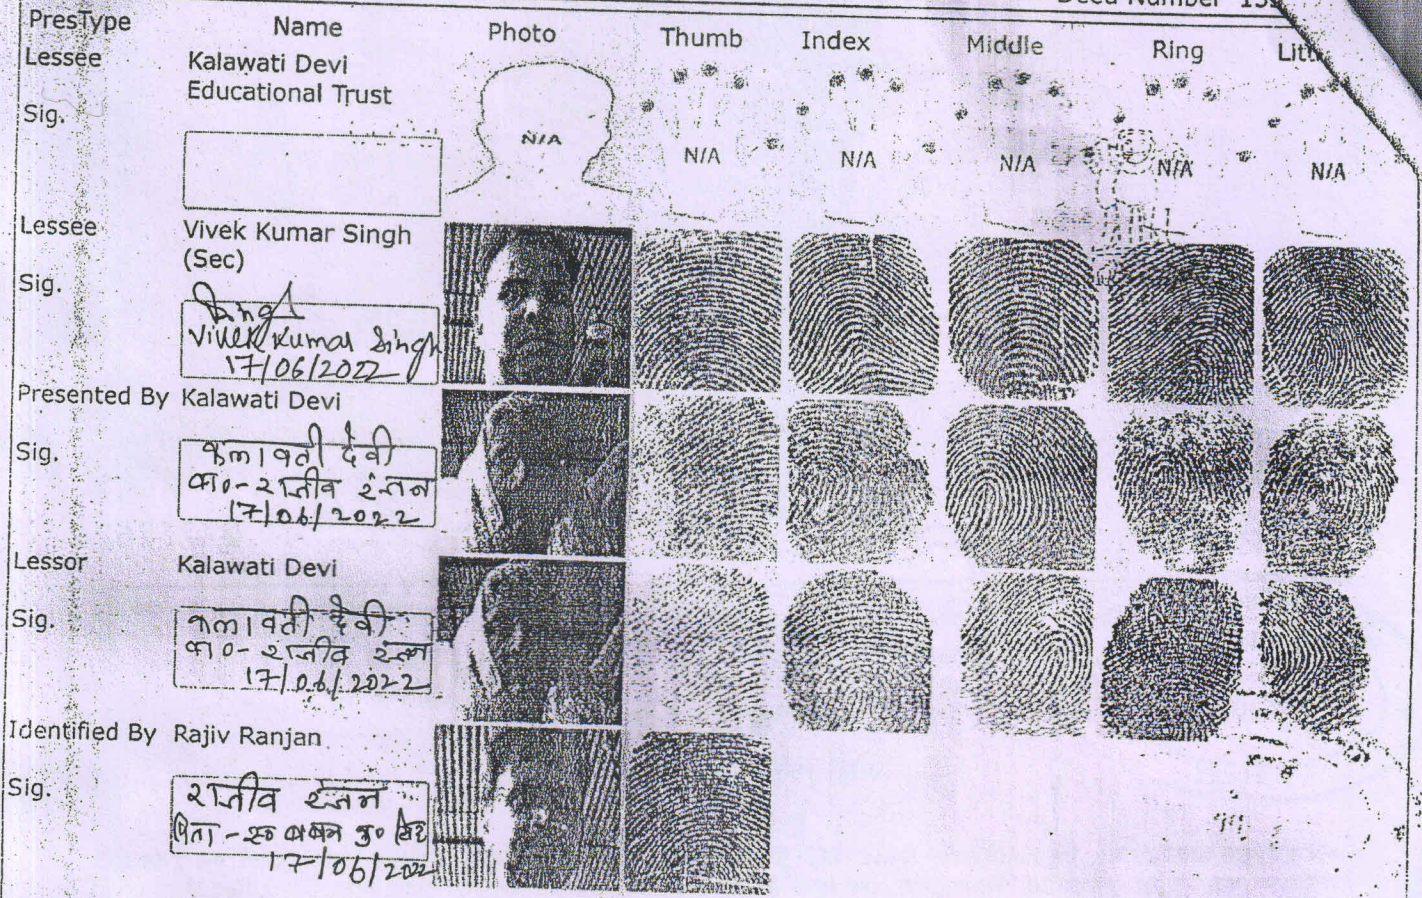 Deed Number
PresType Name Photo Thumb Index Middle Ring
Lessee Kalawati Devi
Educational Trust
Sig.
N/A N/A N/A N/A N/A N/A
Lessee Vivek Kumar Singh
(Sec)
Sig.
Singh
Vivek Kumar Singh
17/06/2022
Presented By Kalawati Devi
Sig.
कलावती देवी
क०-राजीव रंजन
17/06/2022
Lessor Kalawati Devi
Sig.
कलावती देवी
क०-राजीव रंजन
17/06/2022
Identified By Rajiv Ranjan
Sig.
राजीव रंजन
पिता-
17/06/202